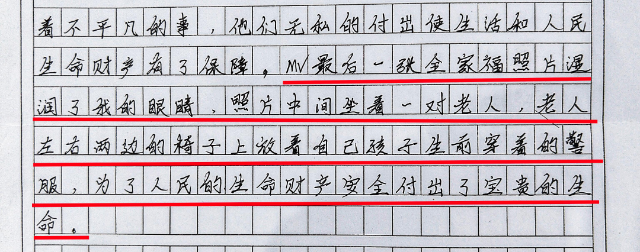 着不平凡的事，他们无私的付出使生活和人民
生命财产有了保障。MV最后一张全家福照片湿
润了我的眼睛，照片中间坐着一对老人，老人
左右两边的椅子上放着自己孩子生前穿着的警
服，为了人民的生命财产安全付出了宝贵的生
命。